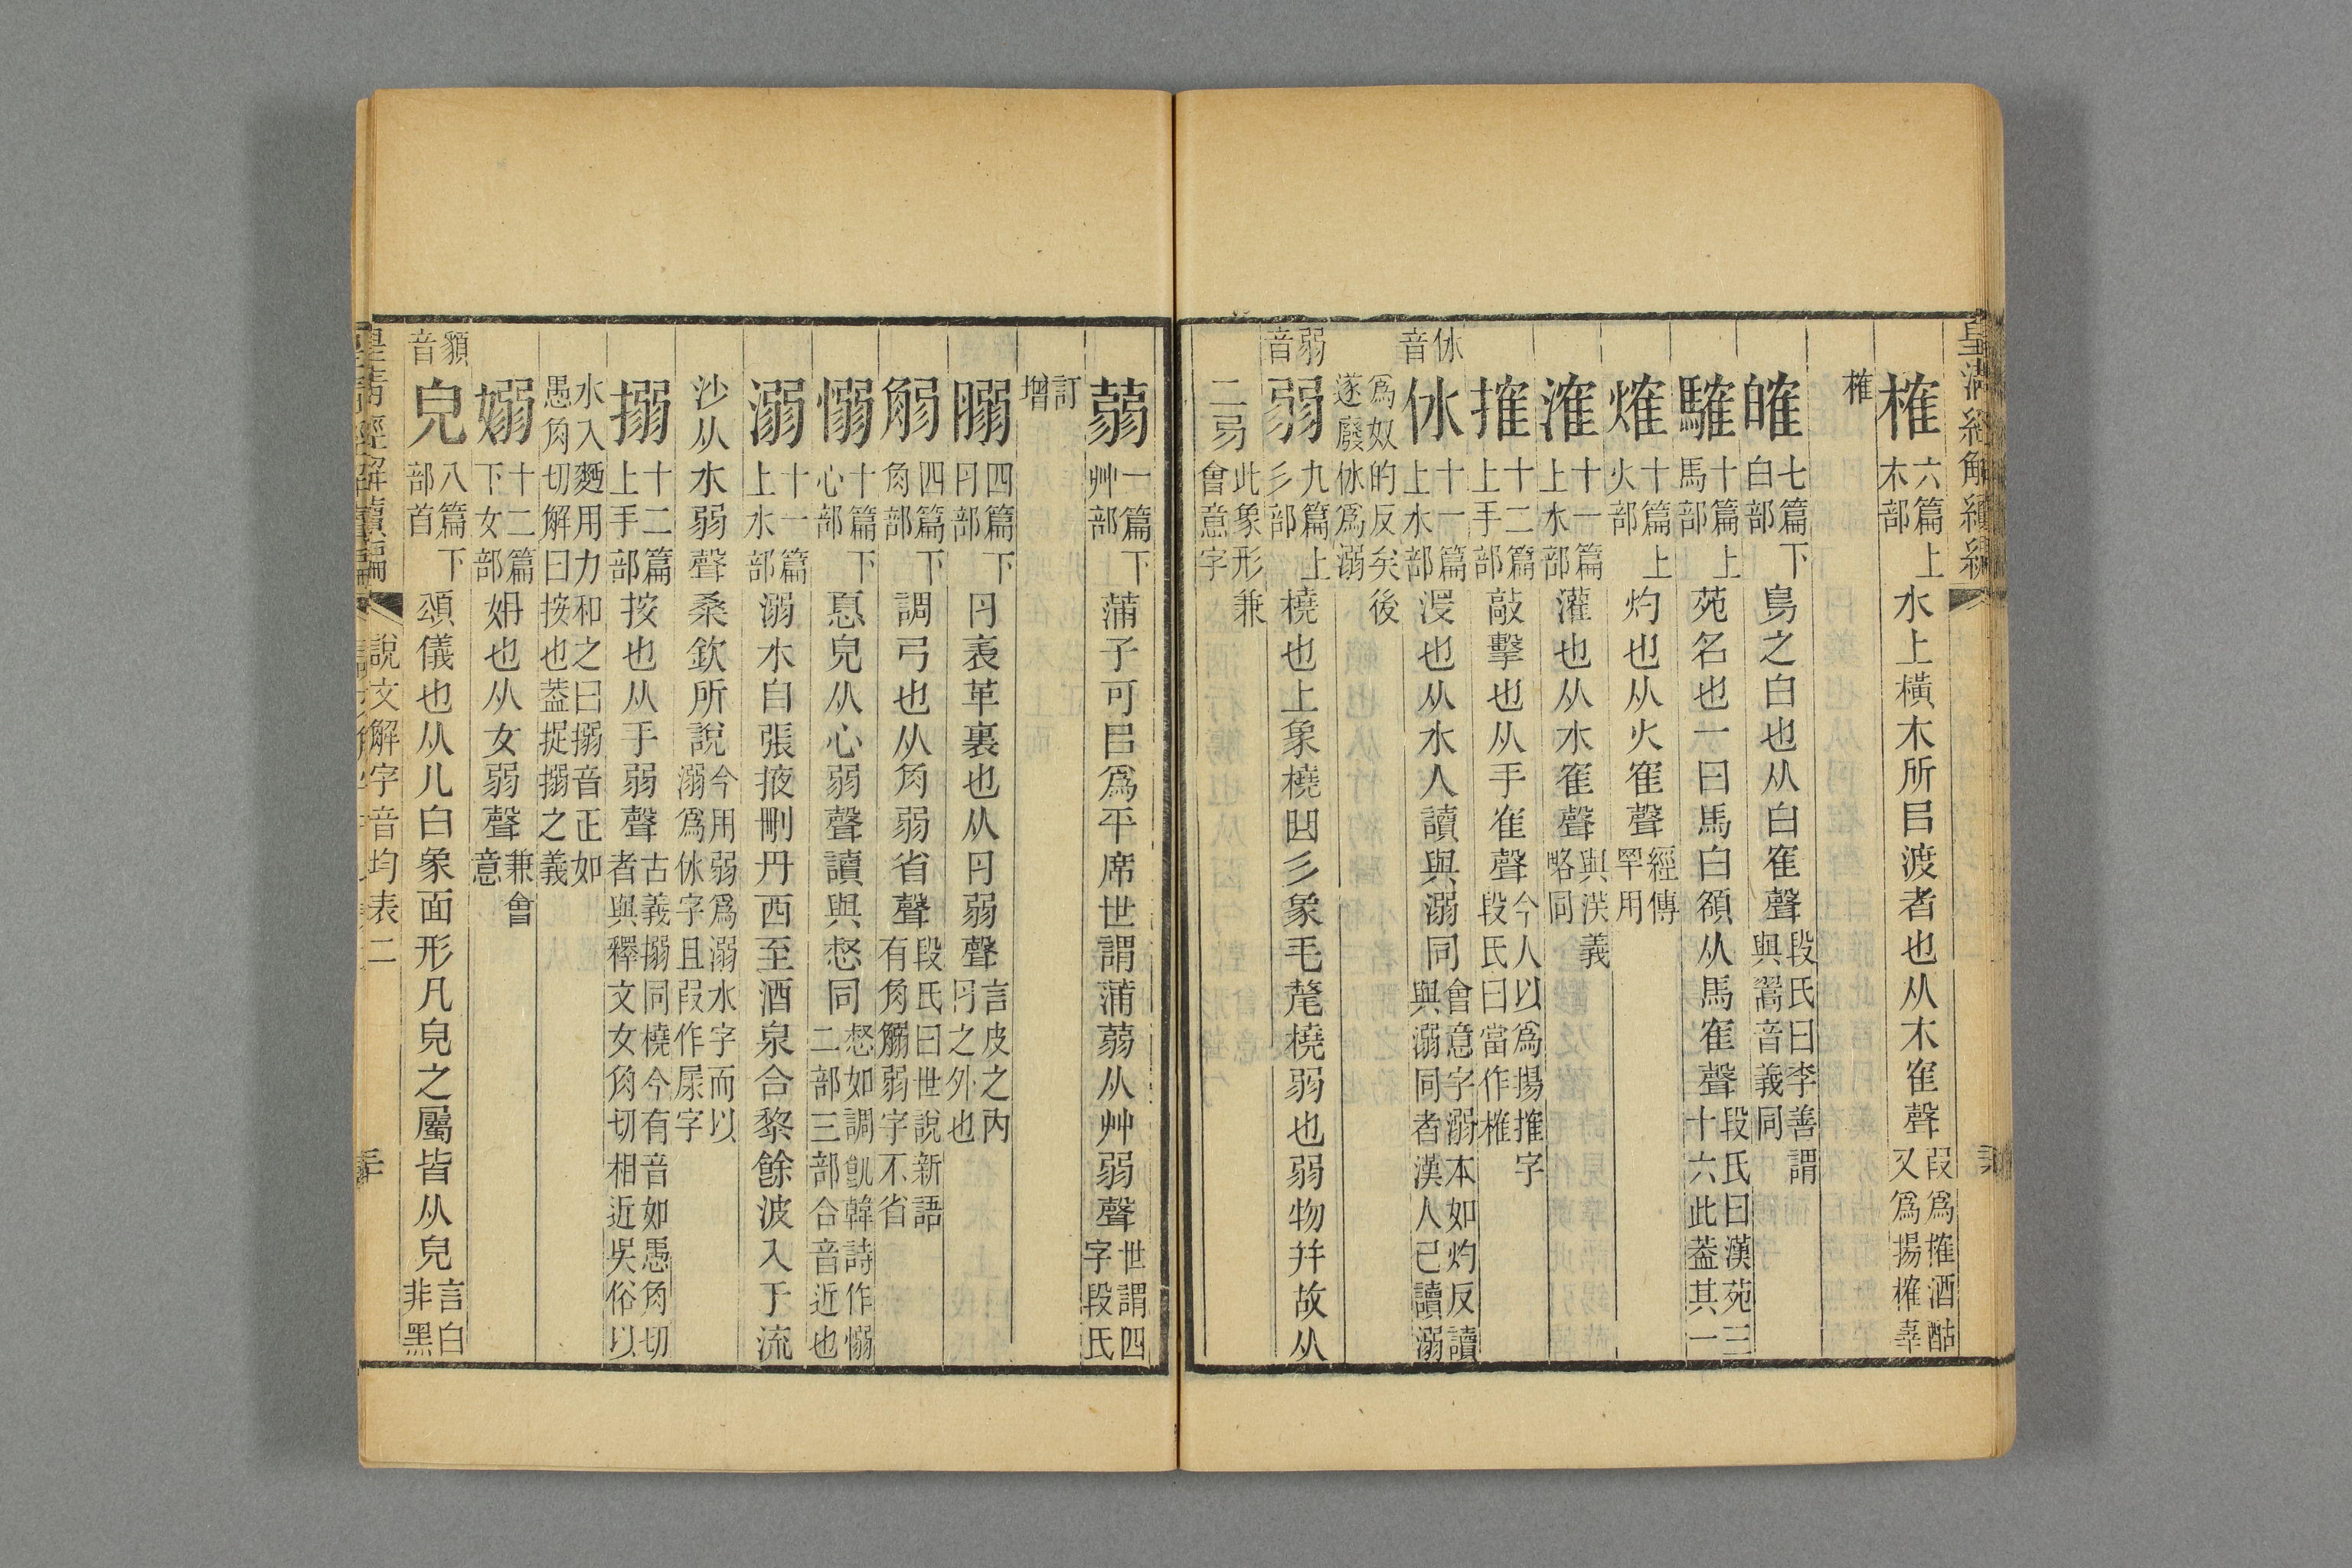 皇清經解續編
榷六篇上木部水上橫木所㠯渡者也从木隺聲叚爲搉酒酤又爲揚榷辜
榷
㿥七篇下白部鳥之白也从白隺聲段氏曰李善謂與翯音義同
騅十篇上馬部苑名也一曰馬白頟从馬隺聲段氏曰漢苑三十六此葢其一
㸌十篇上火部灼也从火隺聲經傳罕用
滀十一篇上水部灌也从水隺聲與渼義略同
搉十二篇上手部敲擊也从手隺聲今人以爲揚搉字段氏曰當作榷
休音㲻十一篇上水部沒也从水人讀與溺同會意字溺本如灼反讀與溺同者漢人已讀溺
爲奴的反矣後遂廢㲻爲溺
弱音弱九篇上彡部橈也上象橈曲彡象毛氂橈弱也弱物幷故从
二㢱此象形兼會意字
蒻一篇下艸部蒲子可㠯爲平席世謂蒲蒻从艸弱聲世謂四字段氏
訂增
䐞四篇下冃部肉表革裏也从肉弱聲言皮之內肉之外也
䚥四篇下角部調弓也从角弱省聲段氏曰世說新語有角䚥弱字不省
愵十篇下心部惪皃从心弱聲讀與惄同惄如調飢韓詩作愵二部三部合音近也
溺十一篇上水部溺水自張掖刪丹西至酒泉合黎餘波入于流
沙从水弱聲桑欽所說今用弱爲溺水字而以溺爲㲻字且叚作尿字
搦十二篇上手部按也从手弱聲古義搦同橈今有音如愚角切者與釋文女角切相近吳俗以
水入麪用力和之曰搦音正如愚角切解曰按也葢捉搦之義
嫋十二篇下女部姌也从女弱聲兼會意
貌音皃八篇下部首頌儀也从儿白象面形凡皃之屬皆从皃言白非黑
皇清經解續編 說文解字音均表二